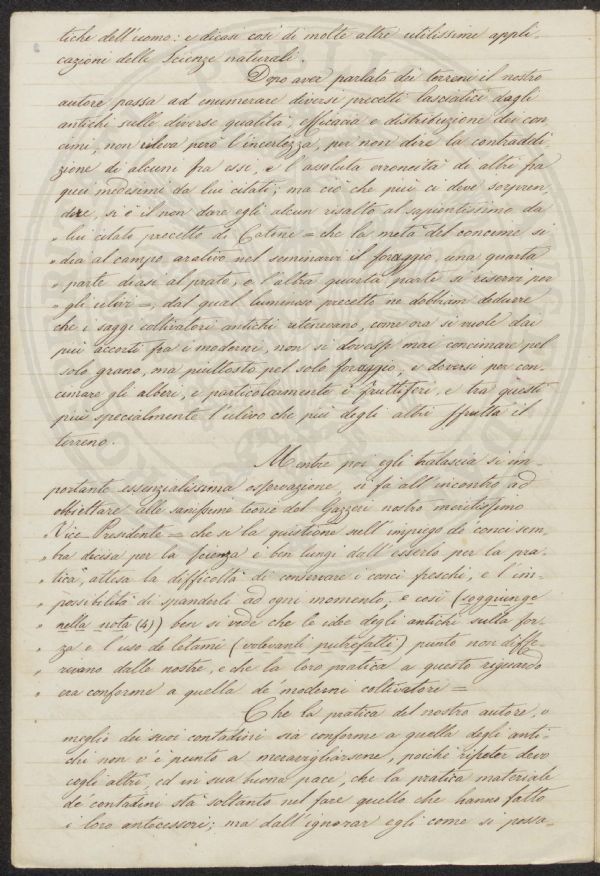 tiche dell'uomo: e dicasi così di molte altre utilissime appli-
cazioni delle Scienze naturali.
Dopo aver parlato dei terreni il nostro
autore passa ad enumerare diversi precetti lasciatici dagli
antichi sulle diverse qualità, efficacia e distribuzione dei con-
cimi, non rileva però l'incertezza, per non dire la contraddi-
zione di alcuni fra essi, e l'assoluta erroneità di altri fra
quei medesimi da lui citati; ma ciò che più ci deve sorpren-
dere, si è il non dare egli alcun risalto al sapientissimo da
" lui citato precetto di Catone = che la metà del concime si
" dia al campo arativo nel seminarvi il foraggio, una quarta
" parte diasi al prato, e l'altra quarta parte si riservi per
" gli ulivi =, dal qual luminoso precetto ne dobbiam dedurre
che i saggi coltivatori antichi ritenevano, come ora si vuole dai
più accorti fra i moderni, non si dovesse mai concimare pel
solo grano, ma piuttosto pel solo foraggio, e doversi poi con-
cimare gli alberi, e particolarmente i fruttiferi, e tra questi
più specialmente l'ulivo che più degli altri sfrutta il
terreno.
Mentre poi egli tralascia sì im-
portante essenzialissima osservazione, si fa all'incontro ad
obiettare alle sanissime teorie del Gazzeri nostro meritissimo
Vice Presidente = che se la quistione sull'impiego de' conci sem-
" bra decisa per la scienza è ben lungi dall'esserlo per la pra-
" tica, attesa la difficoltà di conservare i conci freschi, e l'im-
" possibilità di spanderli ad ogni momento, e così (soggiunge
" nella nota (4)) ben si vede che le idee degli antichi sulla for-
" za e l'uso de letami (volevanli putrefatti) punto non diffe-
" rivano dalle nostre, e che la loro pratica a questo riguardo
" era conforme a quella de' moderni coltivatori =
Che la pratica del nostro autore, o
meglio dei suoi contadini sia conforme a quella degli anti-
chi non v'è punto a meravigliarsene, poichè ripeter devo
cogli altri, ed in sua buona pace, che la pratica materiale
de contadini stà soltanto nel fare quello che hanno fatto
i loro antecessori; ma dall'ignorar egli come si possa-